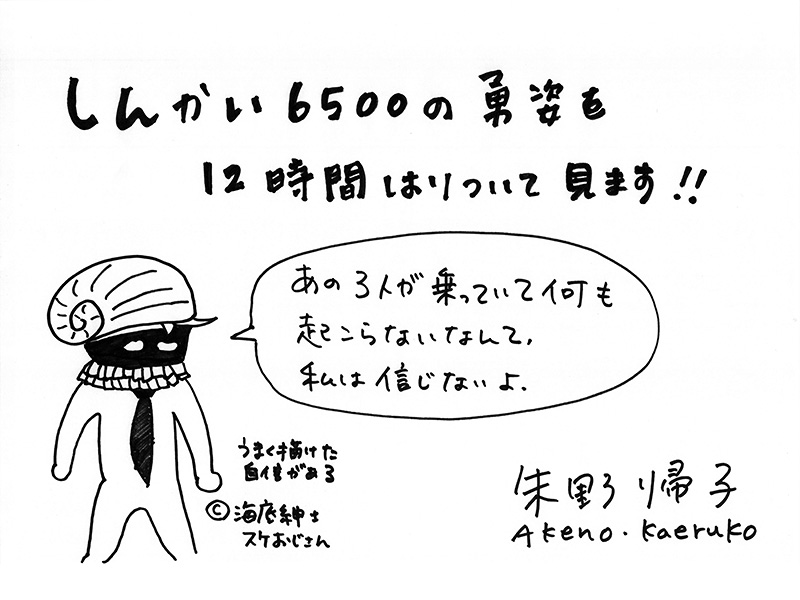 しんかい6500の勇姿を
12時間はりついて見ます!!
あの3人が乗っていて何も
起こらないなんて、
私は信じないよ.
うまく描けた
自信がある
©海底紳士
スケおじさん
朱野帰子
Akeno.Kaeruko